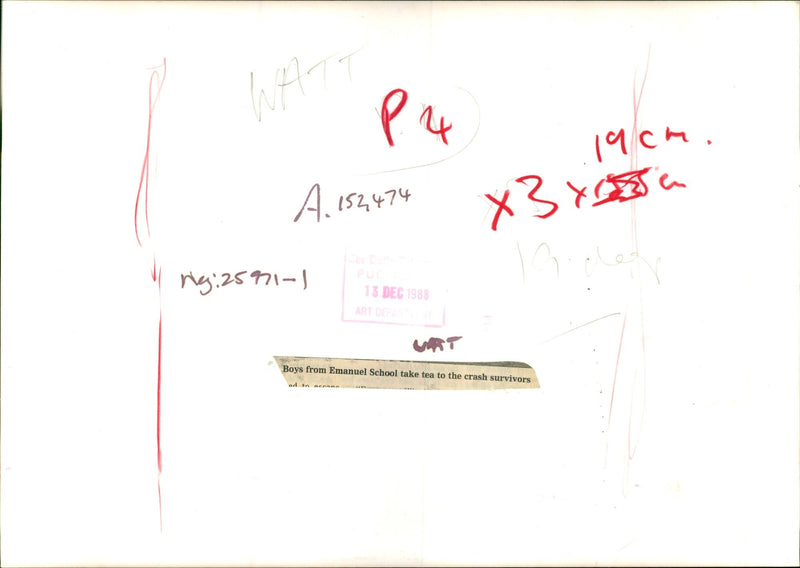 WATT
P 4
19 cm.
x3 x
A. 152,474
19. deep
neg: 25971-1
13 DEC 1988
ART DEPARTMENT
WATT
Boys from Emanuel School take tea to the crash survivors